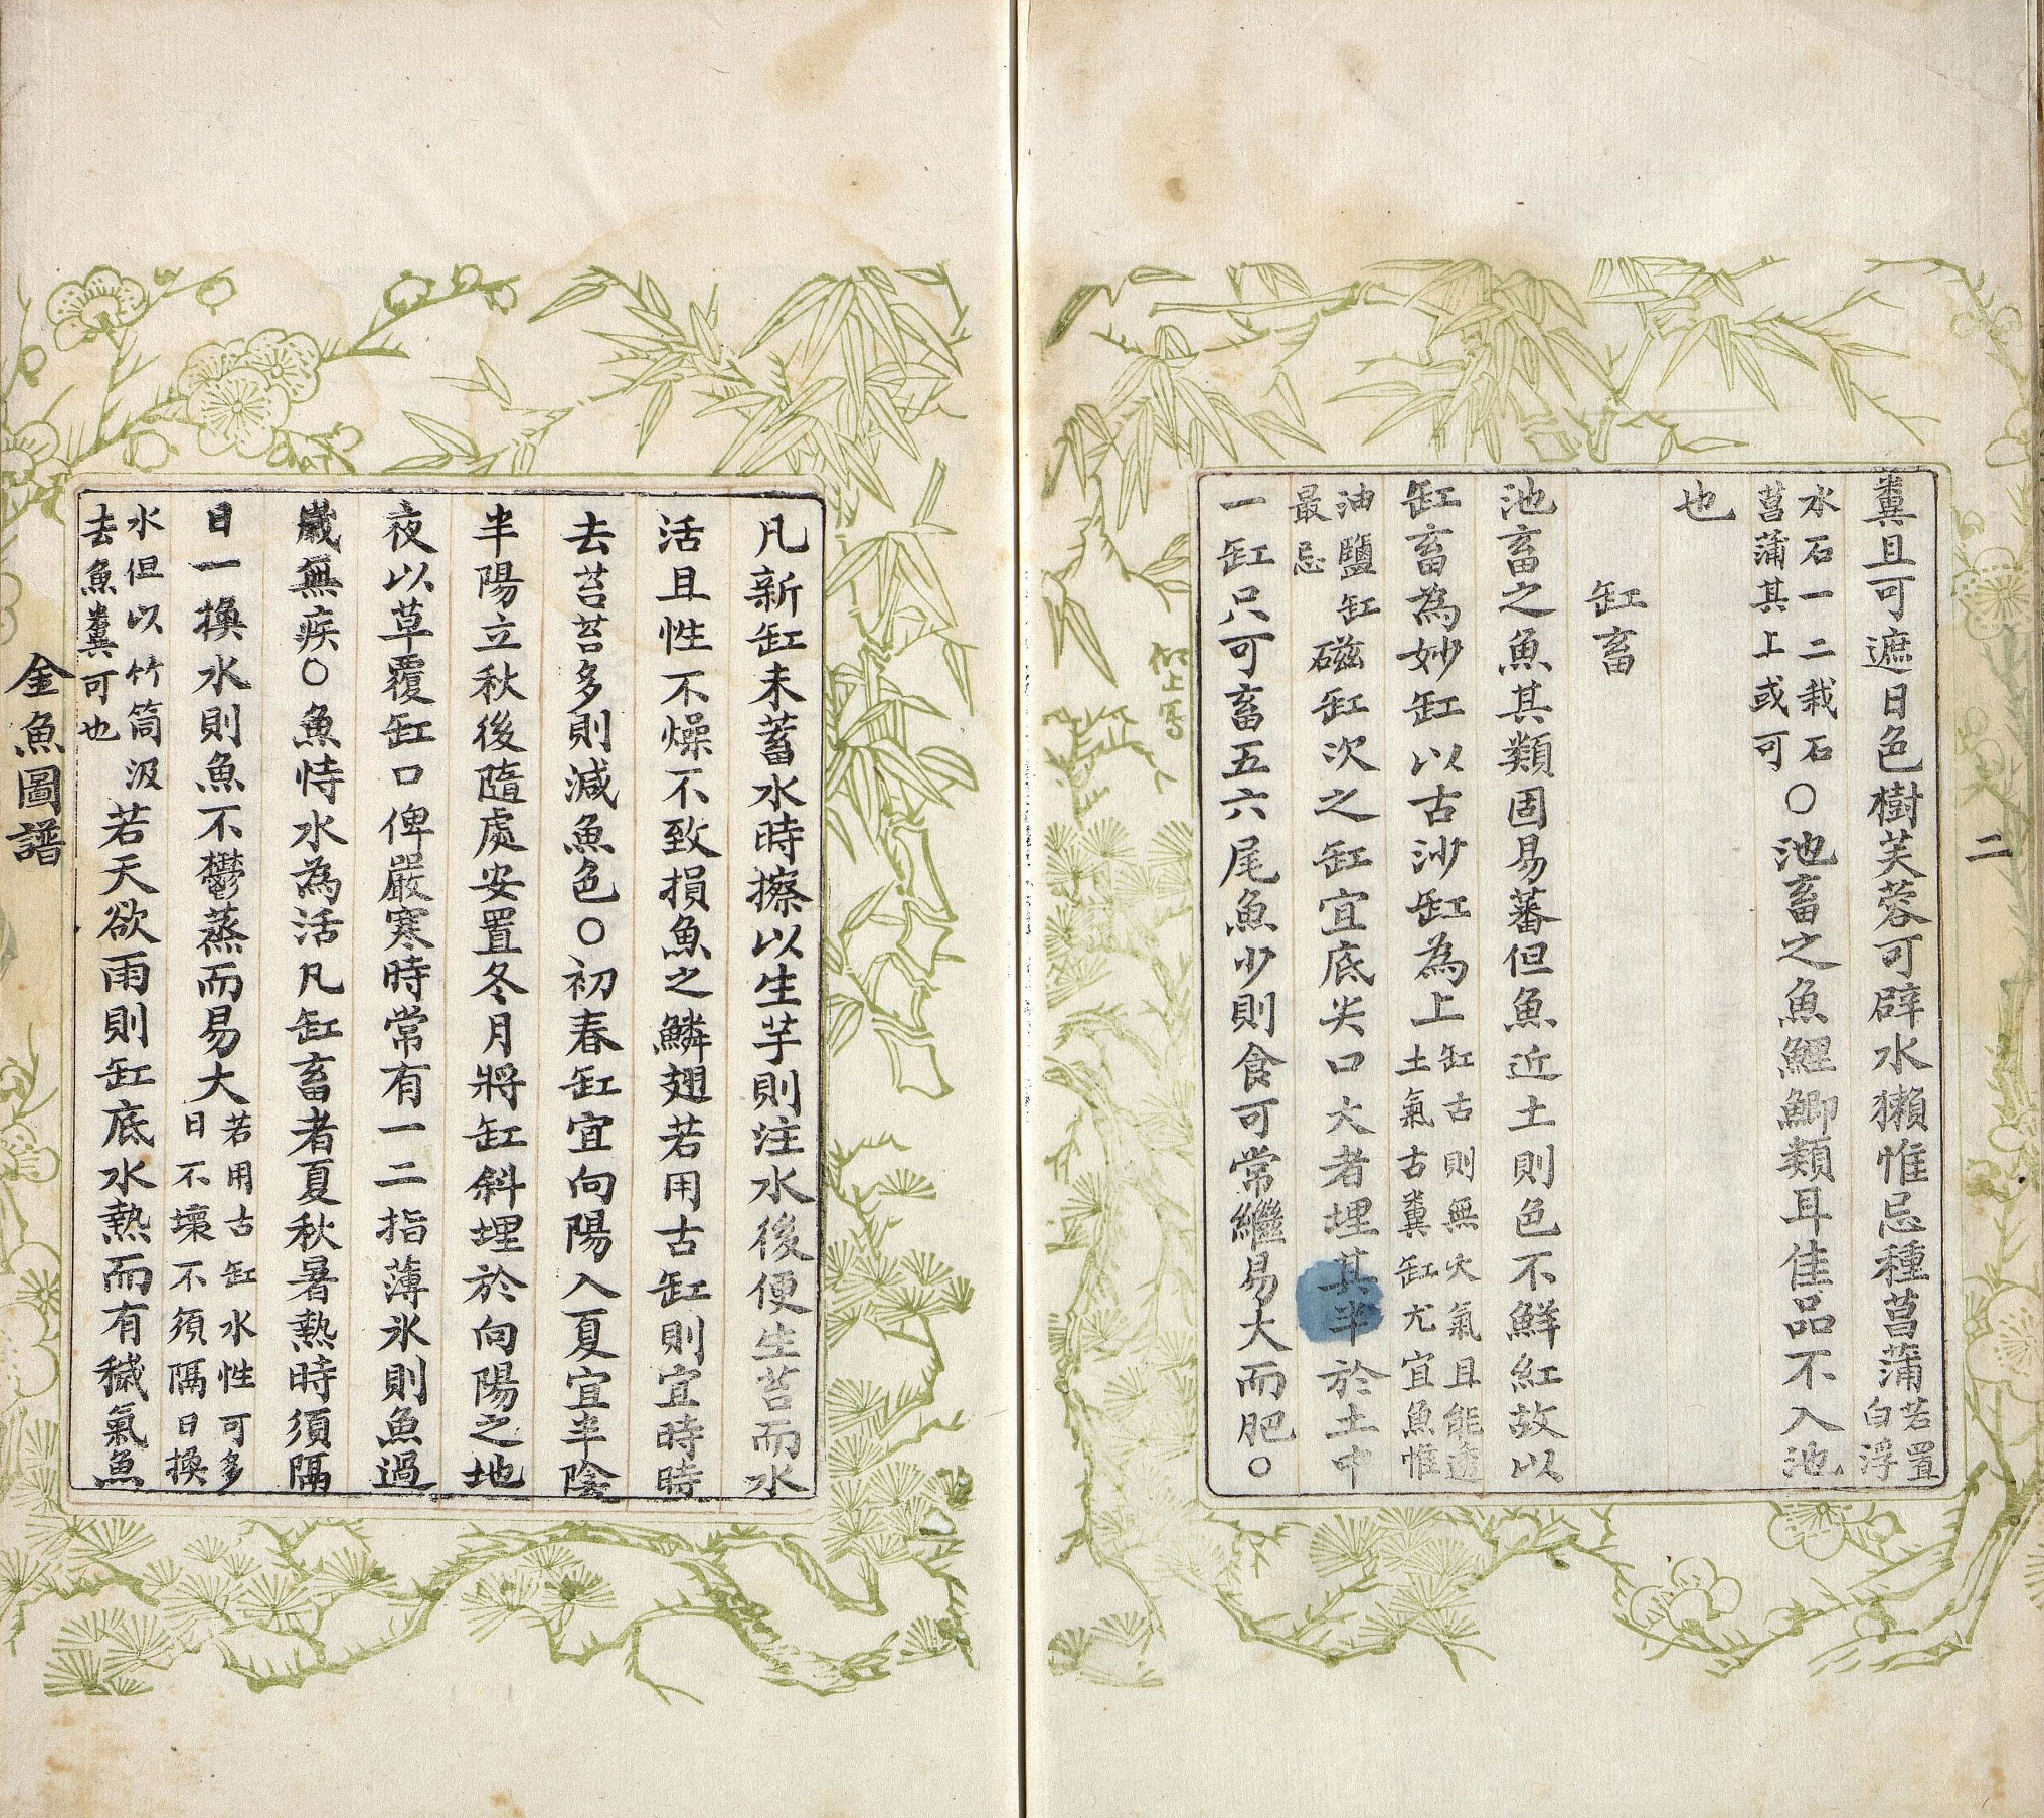 糞且可遮日色樹芙蓉可辟水獺惟忌種菖蒲若置白浮
水石一二栽石菖蒲其上或可○池畜之魚鯉鯽類耳佳品不入池
也
缸畜
池畜之魚其類固易蕃但魚近土則色不鮮紅故以
缸畜為妙缸以古沙缸為上缸古則無火氣且能透土氣古糞缸尤宜魚惟
油鹽缸最忌磁缸次之缸宜底尖口大者埋其半於土中
一缸只可畜五六尾魚少則食可常繼易大而肥○
二
凡新缸未蓄水時擦以生芋則注水後便生苔而水
活且性不燥不致損魚之鱗翅若用古缸則宜時時
去苔苔多則減魚色○初春缸宜向陽入夏宜半陰
半陽立秋後隨處安置冬月將缸斜埋於向陽之地
夜以草覆缸口俾嚴寒時常有一二指薄氷則魚過
歲無疾○魚恃水為活凡缸畜者夏秋暑熱時須隔
日一換水則魚不鬱蒸而易大若用古缸水性可多日不壞不須隔日換
水但以竹筒汲去魚糞可也若天欲雨則缸底水熱而有穢氣魚
金魚圖譜